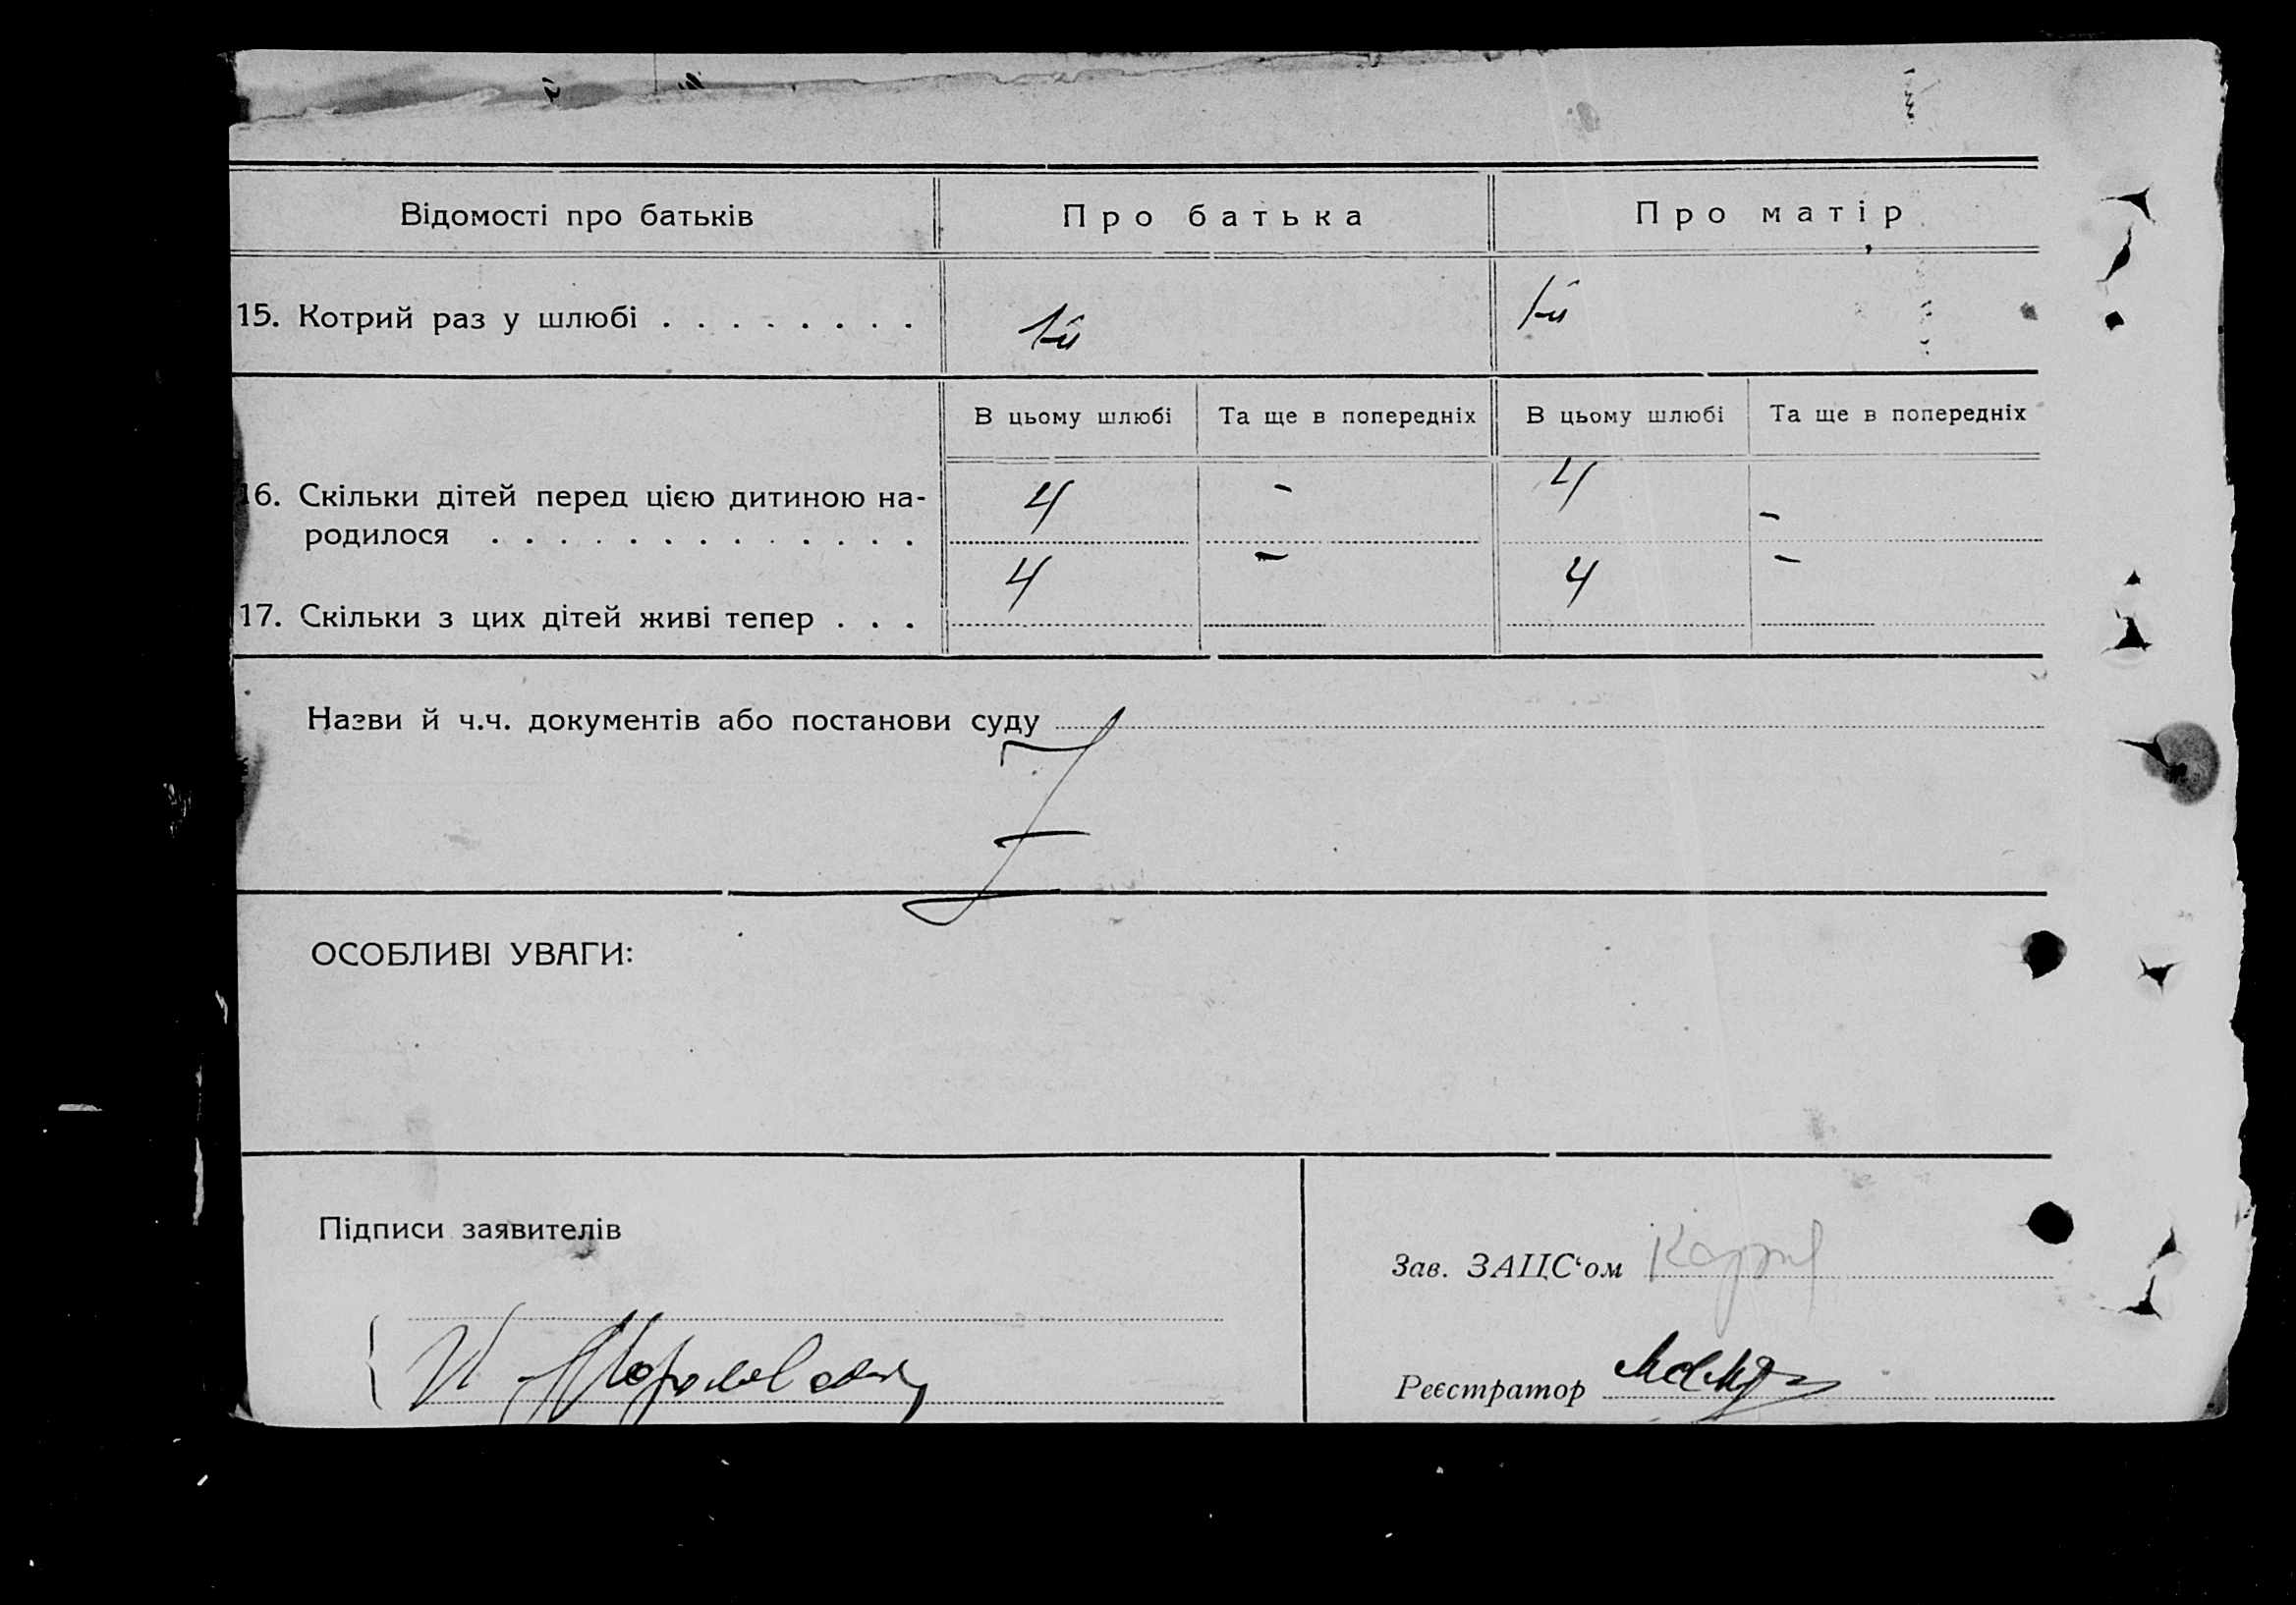 Відомості про батьків Про батька Про матір
15. Котрий раз у шлюбі . . . . . . . . 1-й 1-й
В цьому шлюбі Та ще в попередніх В цьому шлюбі Та ще в попередніх
16. Скільки дітей перед цією дитиною на-
родилося . . . . . . . . . . . . . 4 - 4 -
17. Скільки з цих дітей живі тепер . . . 4 - 4 -
Назви й ч.ч. документів або постанови суду
ОСОБЛИВІ УВАГИ:
Підписи заявителів
Зав. ЗАЦС‘ом
Реєстратор